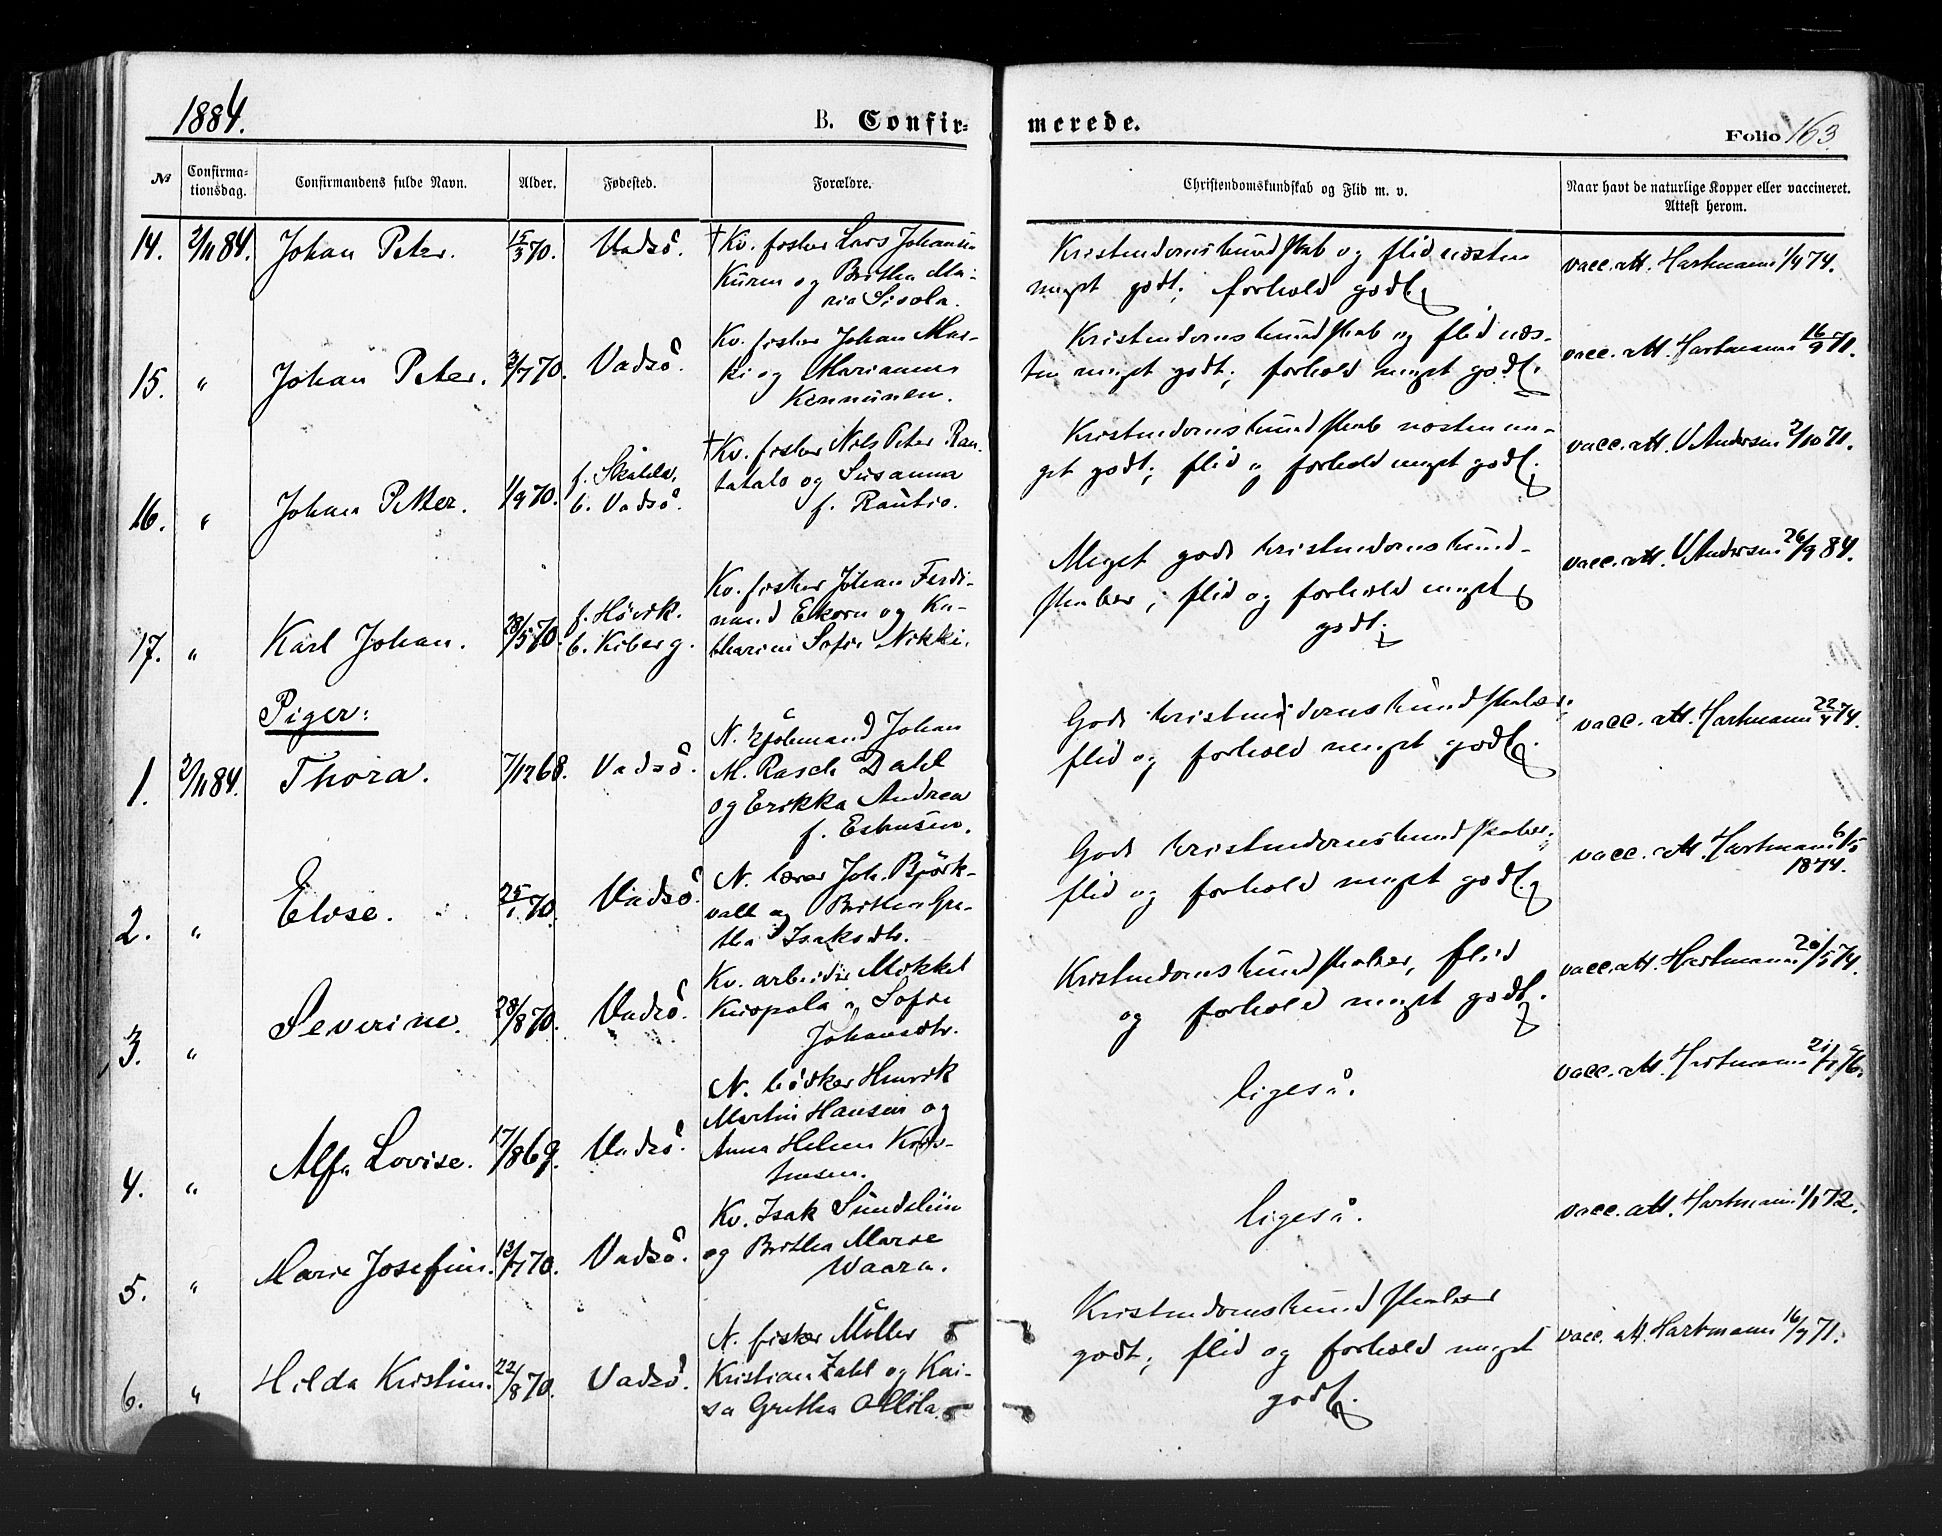 1884.
B. Confir-
merede.
Folio 163.
№
Confirma-
tionsdag.
Confirmandens fulde Navn.
Alder.
Fødested.
Forældre.
Christendomskundskab og Flid m. v.
Naar havt de naturlige Kopper eller vaccineret.
Attest herom.
14. 2/11 84. Johan Peter. 15/3 70. Vadsö.
† Kv. fisker Lars Johansen
og Britha Ma-
ria Sisola.
Kristendomskundskab og flid næsten
meget godt; forhold godt.
vacc. att. Hartmann 1/4 74.
15. " Johan Peter. 3/7 70. Vadsö.
Kv. fisker Johan Mar-
ki og Marianna
Kennünen.
Kristendomskundskab og flid næs-
ten meget godt; forhold meget godt.
vacc. att. Hartmann 16/9 71.
16. " Johan Petter. 1/9 70. f.
b. Vadsö.
† Kv. fisker Nils Peter Ran-
tatalo og Susanna
f. Rautio.
Kristendomskundskab næsten me-
get godt; flid og forhold meget godt.
vacc. att. V Andersen 2/10 71.
17. " Karl Johan. 28/5 70. f. Hövik.
b. Kiberg.
Kv. fisker Johan Ferdi-
nand Ekorn og Ka-
tharina Sofie Nikki.
Meget gode kristendomskund-
skaber, flid og forhold meget
godt.
vacc. att. V Andersen 26/9 84.
Piger:
1. 2/11 84. Thora. 7/12 68. Vadsö.
N. kjöbmand Johan
M. Rasch Dahl
og Erikka Andrea
f. Esbensen.
Gode kristendomskundskaber;
flid og forhold meget godt.
vacc. att. Hartmann 22/4 74.
2. " Elvse. 25/1 70. Vadsö.
N. lærer Joh. Björk-
vall og Britha Gre-
tha Isaksdtr.
Gode kristendomskundskaber;
flid og forhold meget godt.
vacc. att. Hartmann 6/5
1874.
3. " Severine. 28/8 70. Vadsö.
Kv. arbeider Mikkel
Kuopala og Sofie
Johansdtr.
Kristendomskundskaber, flid
og forhold meget godt.
vacc. att. Hartmann 20/5 74.
4. " Alfa Lovise. 17/8 69. Vadsö.
N. bödker Henrik
Martin Hansen og
Anna Helena Kris-
tensen.
ligeså.
vacc. att. Hartmann
5. " Marie Josefine. 13/7 70. Vadsö.
Kv. Isak Sundelin
og Britha Marie
Waara.
ligeså.
vacc. att. Hartmann 1/1 72.
6. " Hilda Kristine. 22/8 70. Vadsö.
N. fisker Möller
Kristian Zahl og Kai-
sa Gretha Ollila.
Kristendomskundskaber
godt; flid og forhold meget
godt.
vacc. att. Hartmann 16/9 71.